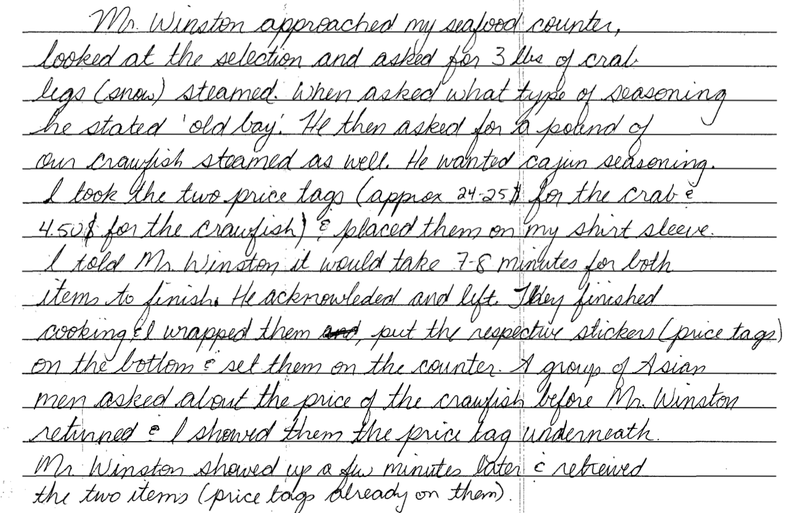 Mr. Winston approached my seafood counter,
looked at the selection and asked for 3 lbs of crab
legs (snow) steamed. When asked what type of seasoning
he stated 'old bay'. He then asked for a pound of
our crawfish steamed as well. He wanted cajun seasoning.
I took the two price tags (approx 24-25$ for the crab &
4.50$ for the crawfish) & placed them on my shirt sleeve.
I told Mr. Winston it would take 7-8 minutes for both
items to finish. He acknowleded and left. They finished
cooking & I wrapped them and, put the respective stickers (price tags)
on the bottom & set them on the counter. A group of Asian
men asked about the price of the crawfish before Mr. Winston
returned & I showed them the price tag underneath.
Mr. Winston showed up a few minutes later & retreived
the two items (price tags already on them).